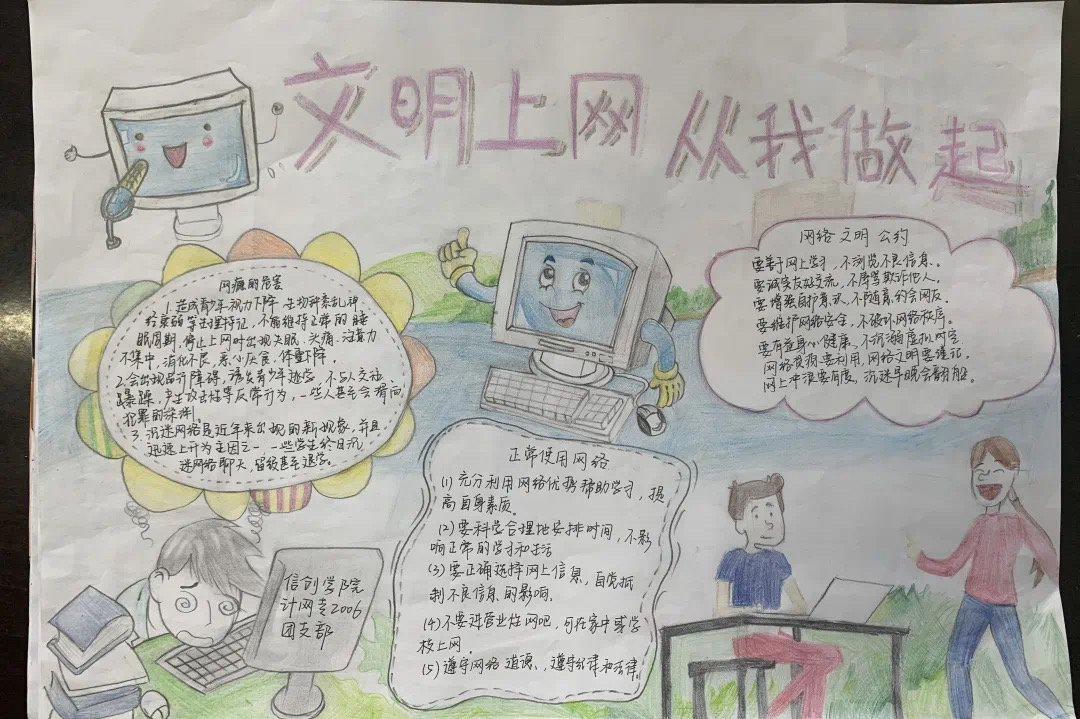 文明上网 从我做起
网瘾的危害
1.造成青少年视力下降,生物钟紊乱,神
经衰弱等生理特征,不能维持正常的睡
眠周期,停止上网时出现失眠、头痛、注意力
不集中,消化不良,恶心厌食,体重下降。
2.会出现品行障碍,诱发青少年逃学,不与人交往
躁,产生攻击性等反常行为,一些人甚至会
犯罪的深渊。
3.沉迷网络是近年来出现的新现象,并且
迅速上升为主因之一,一些学生终日沉
迷网络聊天,留级甚至退学。
网络文明公约
要善于网上学习,不浏览不良信息。
要诚实友好交流,不辱骂欺诈他人。
要增强自护意识,不随意约会网友。
要维护网络安全,不破坏网络秩序。
要有益身心健康,不沉溺虚拟时空
网络资源要利用,网络文明要谨记。
网上冲浪要有度,沉迷早晚会翻船。
正常使用网络
(1)充分利用网络优势帮助学习,提
高自身素质。
(2)要科学合理地安排时间,不影
响正常的学习和生活
(3)要正确选择网上信息,自觉抵
制不良信息的影响。
(4)不要进营业性网吧,可在家中或学
校上网。
(5)遵守网络道德、遵守纪律和法律。
信创学院
计网专2006
团支部